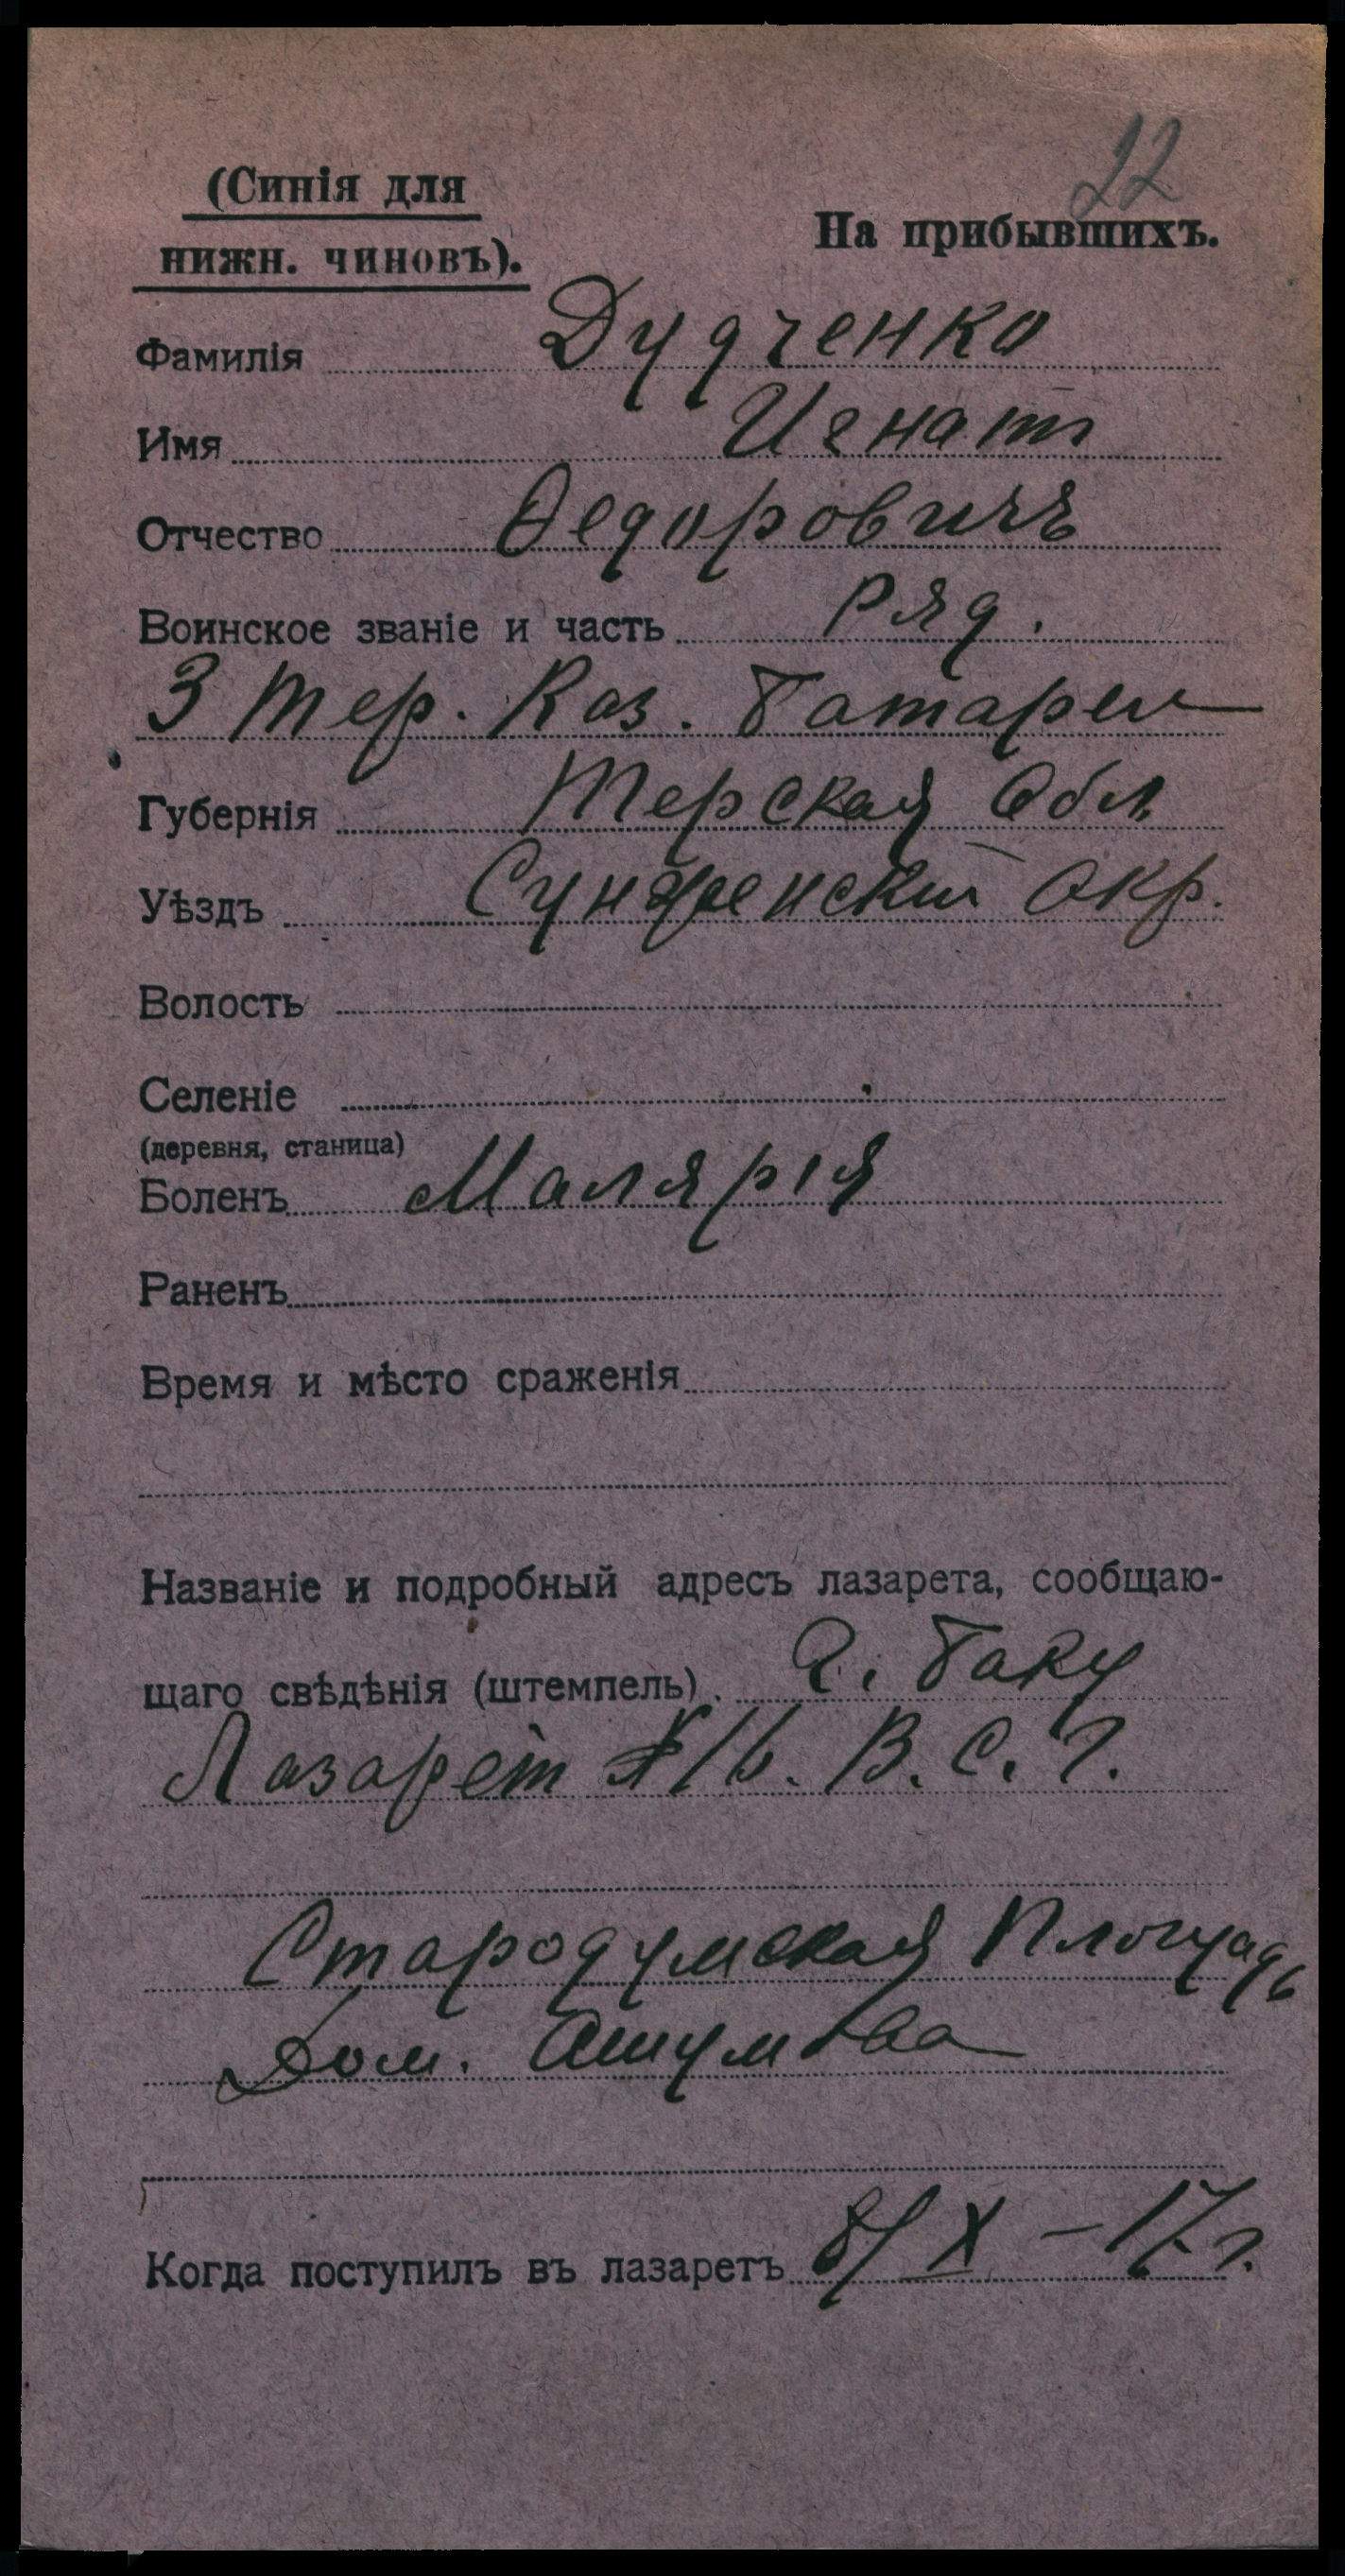 22
(Синія для
нижн. чиновъ).
На прибывшихъ.
Фамилія Дудченко
Имя Игнат
Отчество Ѳедоровичъ
Воинское званіе и часть Ряд.
3 Тер. Каз. Батареи
Губернія Терская Обл.
Уѣздъ Сунженский Окр.
Волость
Селеніе
(деревня, станица)
Боленъ Малярія
Раненъ
Время и мѣсто сраженія
Названіе и подробный адресъ лазарета, сообщаю-
щаго свѣдѣнія (штемпель). г. Баку
Лазарет № 16. В. С. Г.
Стародумская Площадь
Дом. Ашумова
Когда поступилъ въ лазаретъ 8/X – 17 г.